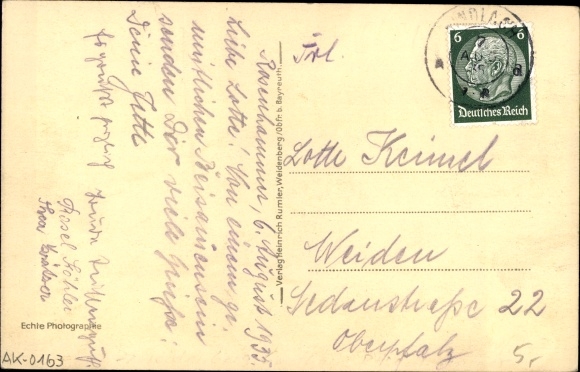 Rosenhammer, 6. August 1935.
Liebe Lotte! Von einem ge-
mütlichen Beisammensein
senden Dir viele Grüße:
Deine Jette
Resel Köhler
Echte Photographie
AK-0163
Verlag Heinrich Rumler, Weidenberg/Obfr. b. Bayreuth
6 6
Deutsches Reich
Frl.
Lotte Keimel
Weiden
Sedanstraße 22
Oberpfalz
5,-